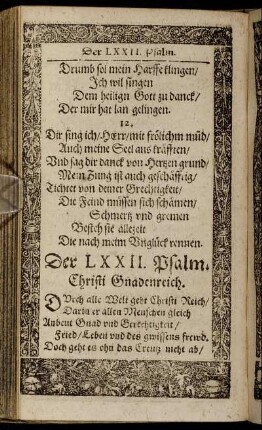 Der LXXII. Psalm.
Drumb sol mein Harffe klingen/
Ich wil singen
Dem heilign Gott zu danck/
Der mir hat lan gelingen.
12.
Dir sing ich/ HErr/ mit frölichm mūd/
Auch meine Seel aus kräfften/
Vnd sag dir danck von Hertzen grund/
Mein Zung ist auch geschäfftig/
Tichtet von deiner Grechtigkeit/
Die Feind müssen sich schämen/
Schmertz vnd gremen
Besteh sie allezeit
Die nach meim Vnglück rennen.
Der LXXII. Psalm.
Christi Gnadenreich.
DVrch alle Welt geht Christi Reich/
Darin er allen Menschen gleich
Anbeut Gnad vnd Gerechtigkeit/
Fried/ Leben vnd des gwissens frewd.
Doch geht es ohn das Creutz nicht ab/